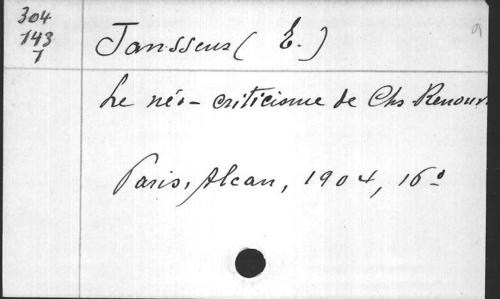 304
143
1
Janssens (E.)
9
Le néo-criticisme de Chs Renouv
Paris, Alcan, 1904, 16º